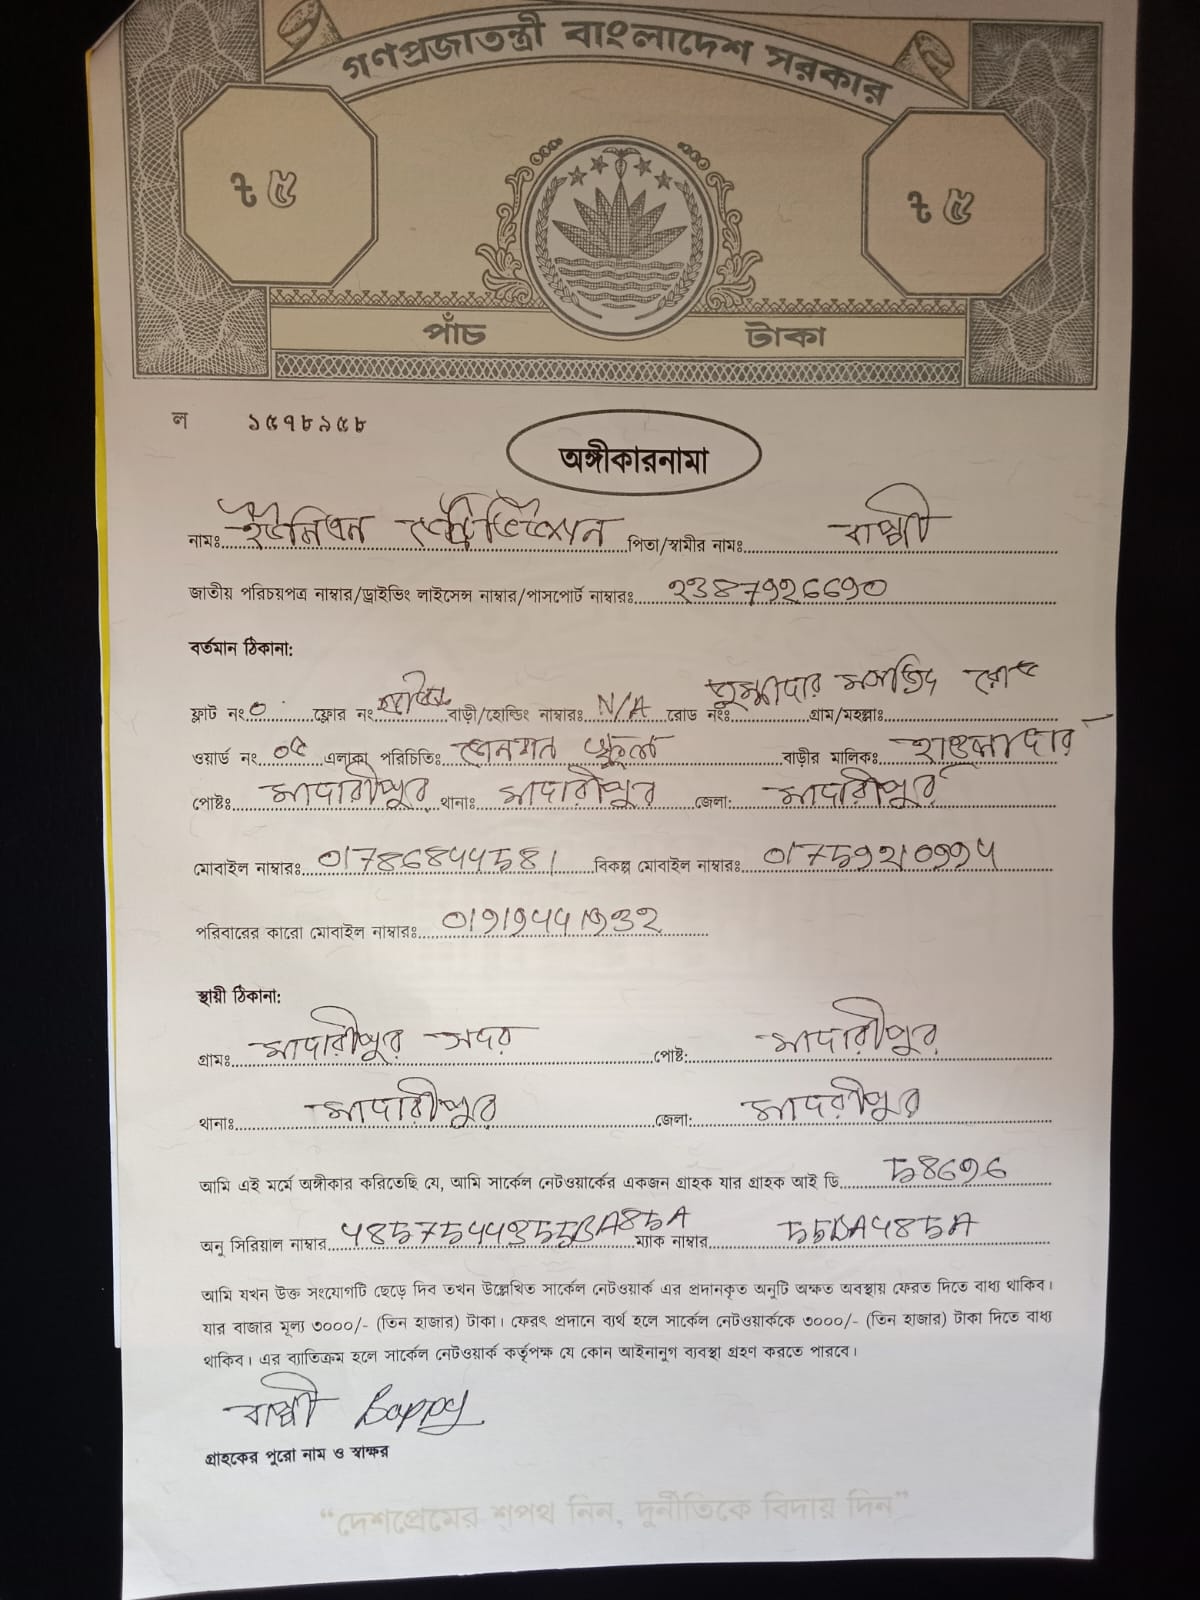 গণপ্রজাতন্ত্রী বাংলাদেশ সরকার
৳ ৫ ৳ ৫
পাঁচ টাকা
ল ১৫৭৮৯৫৮
অঙ্গীকারনামা
নামঃ ইউনিয়ন পিতা/স্বামীর নামঃ বাপ্পী
জাতীয় পরিচয়পত্র নাম্বার/ড্রাইভিং লাইসেন্স নাম্বার/পাসপোর্ট নাম্বারঃ
বর্তমান ঠিকানা:
ফ্লাট নং 0 ফ্লোর নং বাড়ী/হোল্ডিং নাম্বারঃ N/A রোড নংঃ মসজিদ রোড গ্রাম/মহল্লাঃ
ওয়ার্ড নং ০৫ এলাকা পরিচিতিঃ স্কুল বাড়ীর মালিকঃ হাওলাদার
পোষ্টঃ মাদারীপুর থানাঃ মাদারীপুর জেলা: মাদারীপুর
মোবাইল নাম্বারঃ বিকল্প মোবাইল নাম্বারঃ
পরিবারের কারো মোবাইল নাম্বারঃ
স্থায়ী ঠিকানা:
গ্রামঃ মাদারীপুর সদর পোষ্ট: মাদারীপুর
থানাঃ মাদারীপুর জেলা: মাদরীপুর
আমি এই মর্মে অঙ্গীকার করিতেছি যে, আমি সার্কেল নেটওয়ার্কের একজন গ্রাহক যার গ্রাহক আই ডি
অনু সিরিয়াল নাম্বার ম্যাক নাম্বার
আমি যখন উক্ত সংযোগটি ছেড়ে দিব তখন উল্লেখিত সার্কেল নেটওয়ার্ক এর প্রদানকৃত অনুটি অক্ষত অবস্থায় ফেরত দিতে বাধ্য থাকিব।
যার বাজার মূল্য ৩০০০/- (তিন হাজার) টাকা। ফেরৎ প্রদানে ব্যর্থ হলে সার্কেল নেটওয়ার্ককে ৩০০০/- (তিন হাজার) টাকা দিতে বাধ্য
থাকিব। এর ব্যাতিক্রম হলে সার্কেল নেটওয়ার্ক কর্তৃপক্ষ যে কোন আইনানুগ ব্যবস্থা গ্রহণ করতে পারবে।
বাপ্পী Bappy
গ্রাহকের পুরো নাম ও স্বাক্ষর
“দেশপ্রেমের শপথ নিন, দুর্নীতিকে বিদায় দিন”